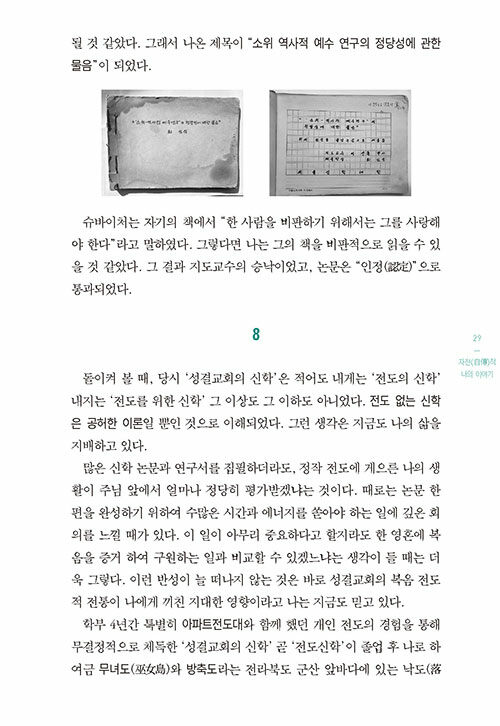 될 것 같았다. 그래서 나온 제목이 “소위 역사적 예수 연구의 정당성에 관한
물음”이 되었다.
슈바이처는 자기의 책에서 “한 사람을 비판하기 위해서는 그를 사랑해
야 한다”라고 말하였다. 그렇다면 나는 그의 책을 비판적으로 읽을 수 있
을 것 같았다. 그 결과 지도교수의 승낙이었고, 논문은 “인정(認定)”으로
통과되었다.
8
29
자전(自傳)적
나의 이야기
돌이켜 볼 때, 당시 ‘성결교회의 신학’은 적어도 내게는 ‘전도의 신학’
내지는 ‘전도를 위한 신학’ 그 이상도 그 이하도 아니었다. 전도 없는 신학
은 공허한 이론일 뿐인 것으로 이해되었다. 그런 생각은 지금도 나의 삶을
지배하고 있다.
많은 신학 논문과 연구서를 집필하더라도, 정작 전도에 게으른 나의 생
활이 주님 앞에서 얼마나 정당히 평가받겠냐는 것이다. 때로는 논문 한
편을 완성하기 위하여 수많은 시간과 에너지를 쏟아야 하는 일에 깊은 회
의를 느낄 때가 있다. 이 일이 아무리 중요하다고 할지라도 한 영혼에 복
음을 증거 하여 구원하는 일과 비교할 수 있겠느냐는 생각이 들 때는 더
욱 그렇다. 이런 반성이 늘 떠나지 않는 것은 바로 성결교회의 복음 전도
적 전통이 나에게 끼친 지대한 영향이라고 나는 지금도 믿고 있다.
학부 4년간 특별히 아파트전도대와 함께 했던 개인 전도의 경험을 통해
무결정적으로 체득한 ‘성결교회의 신학’ 곧 ‘전도신학’이 졸업 후 나로 하
여금 무녀도(巫女島)와 방축도라는 전라북도 군산 앞바다에 있는 낙도(落